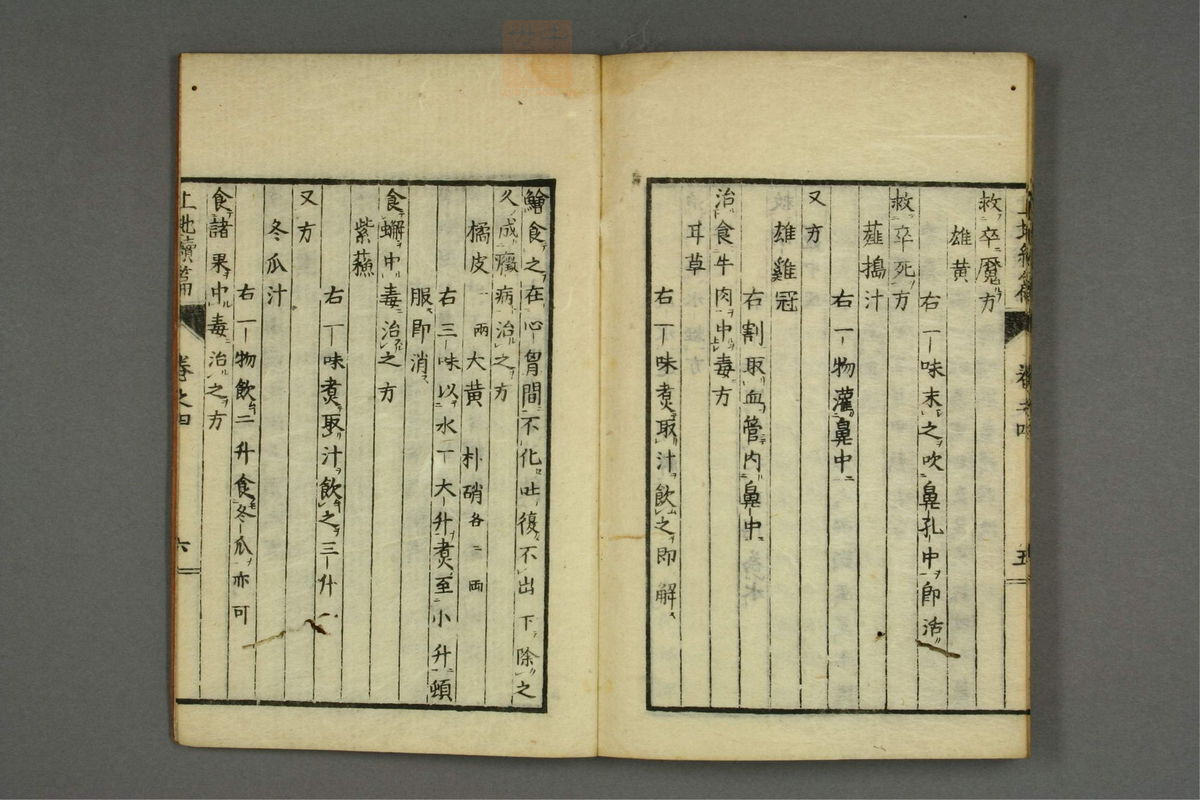 救卒魘方
雄黄
右一味末之吹鼻孔中即活
救卒死方
薤搗汁
右一物灌鼻中
又方
雄雞冠
右割取血管内鼻中
治食牛肉中毒方
耳草
右一味煮取汁飲之即解
五
鱠食之在心胷間不化吐復不出下除之
久成癥病治之方
橘皮一兩大黄朴硝各二兩
右三味以水一大升煮至小升頓
服即消
食蠏中毒治之方
紫蘓
右一味煮取汁飲之三升
又方
冬瓜汁
右一物飲二升食冬瓜亦可
食諸果中毒治之方
續篇
卷之四
六